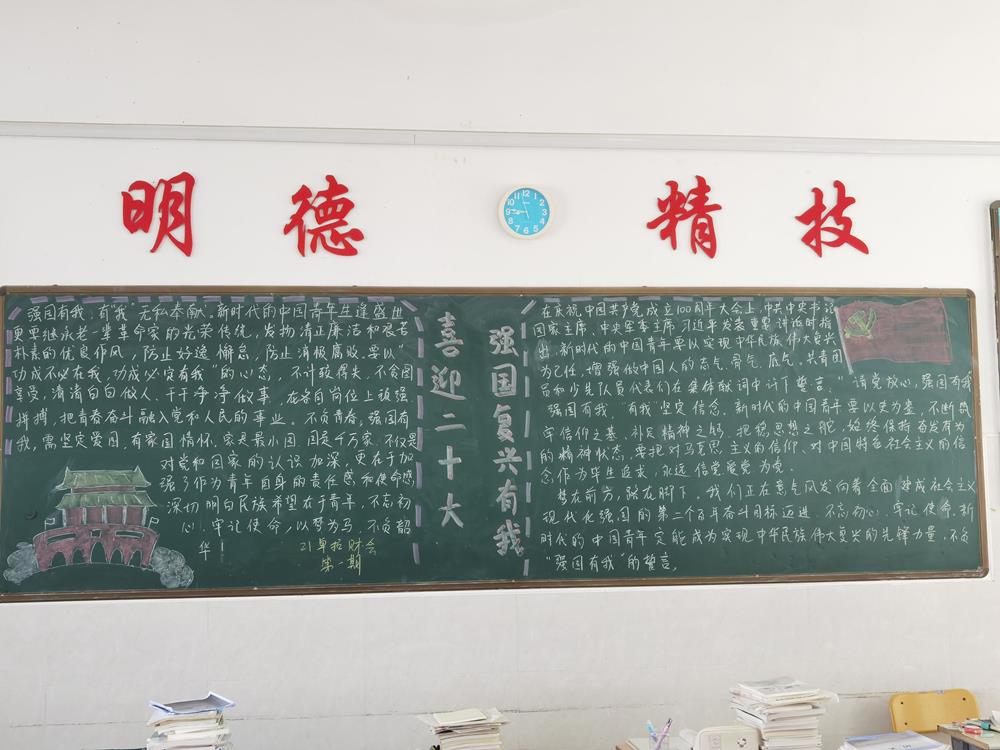 明德 精技
强国有我,有"我"无私奉献。新时代的中国青年生逢盛世
更要继承老一辈革命家的光荣传统,发扬清正廉洁和艰苦
朴素的优良作风,防止好逸懈怠,防止消极腐败。要以"
功成不必在我,功成必定有我"的心态,不计较得失,不贪图
享受,清清白白做人,干干净净做事,在各自岗位上顽强
拼搏,把青春奋斗融入党和人民的事业。不负青春,强国有
我,需坚定爱国,有家国情怀。家是最小国,国是千万家。不仅是
对党和国家的认识加深,更在于加
强了作为青年自身的责任感和使命感
深切明白民族希望在于青年,不忘初
心,牢记使命,以梦为马,不负韶
华!
21单招财会
第一期
喜迎二十大
强国复兴有我
在庆祝中国共产党成立100周年大会上,中共中央书记
国家主席、中央军委主席习近平发表重要讲话时指
出,新时代的中国青年要以实现中华民族伟大复兴
为己任,增强做中国人的志气、骨气、底气。共青团
员和少先队员代表们在集体献词中许下誓言:"请党放心,强国有我
强国有我,"有我"坚定信念。新时代的中国青年要以史为鉴,不断筑
牢信仰之基、补足精神之钙、把稳思想之舵,始终保持奋发有为
的精神状态,要把对马克思主义的信仰、对中国特色社会主义的信
念作为毕生追求,永远信党爱党为党。
梦在前方,路在脚下。我们正在意气风发向着全面建成社会主义
现代化强国的第二个百年奋斗目标迈进,不忘初心,牢记使命,新
时代的中国青年定能成为实现中华民族伟大复兴的先锋力量,不负
"强国有我"的誓言。
12
1
2
3
4
5
6
7
8
9
10
11